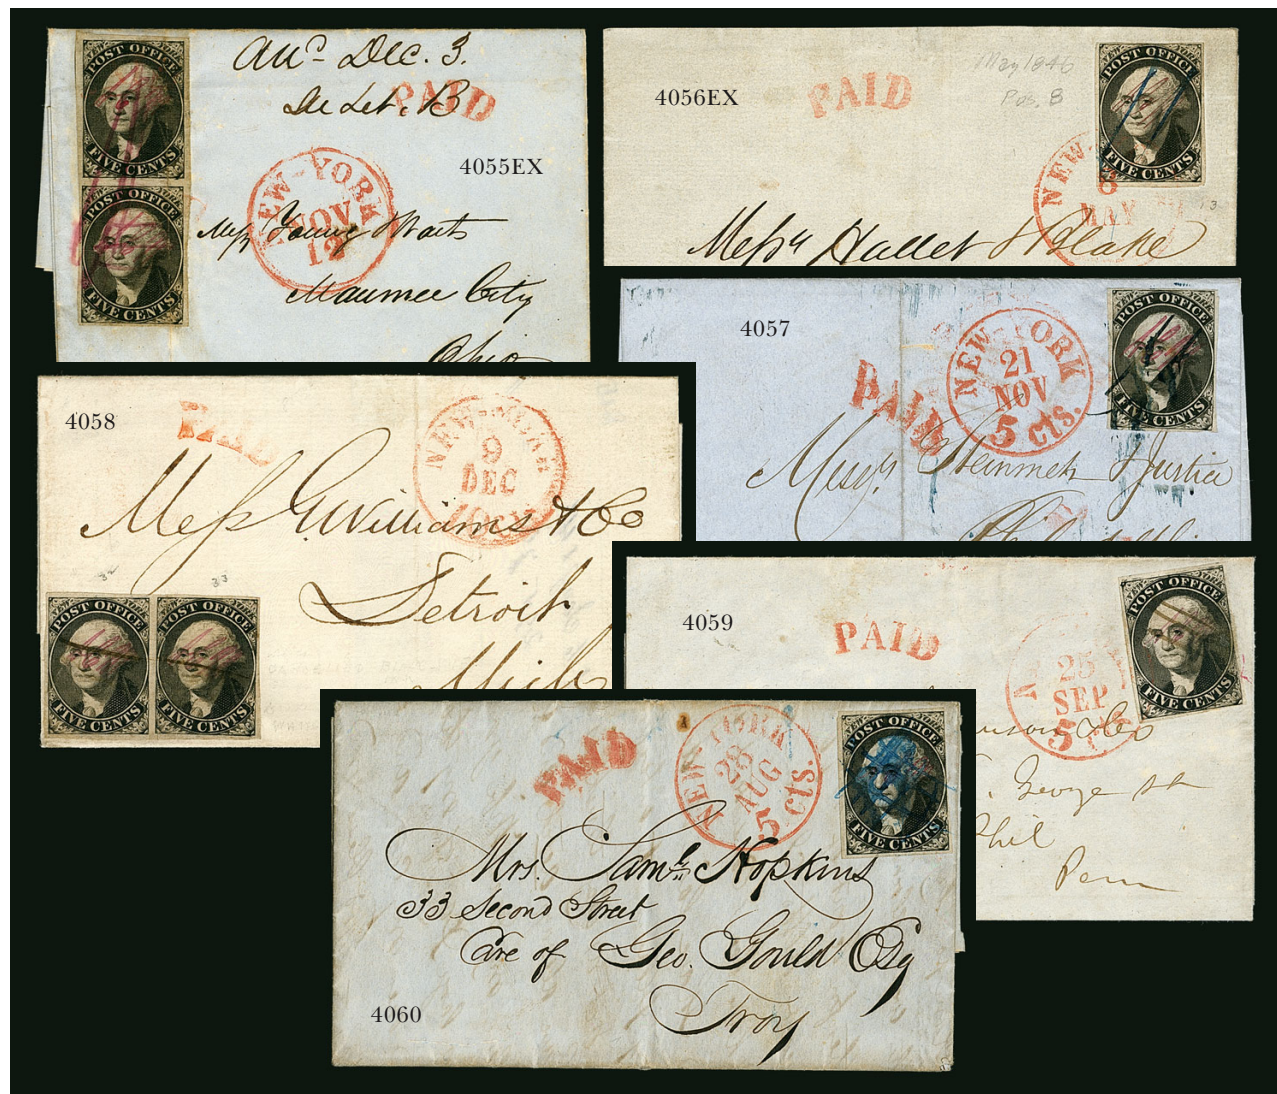 POST OFFICE
FIVE CENTS
POST OFFICE
FIVE CENTS
Ansd Dec. 3.
De Let. B
PAID
4055EX
NEW-YORK
NOV
12
Mess Young & Waits
Maumee City
Ohio
4056EX
PAID
May 1846
Pos. 8
POST OFFICE
FIVE CENTS
NEW-
8
MAY
13
Messrs Hallet & Blake
4057
PAID
NEW-YORK
21
NOV
5 cts.
POST OFFICE
FIVE CENTS
Messrs Steinmetz & Justice
4058
PAID
NEW-YORK
9
DEC
Mess G. Williams & Co
Detroit
Mich
32
33
POST OFFICE
FIVE CENTS
POST OFFICE
FIVE CENTS
4059
PAID
25
SEP
5
POST OFFICE
FIVE CENTS
George st
Phil
Penn
PAID
NEW-YORK
28
AUG
5 cts.
POST OFFICE
FIVE CENTS
Mrs. Saml. Hopkins
33 Second Street
Care of Geo. Gould Esq
Troy
4060